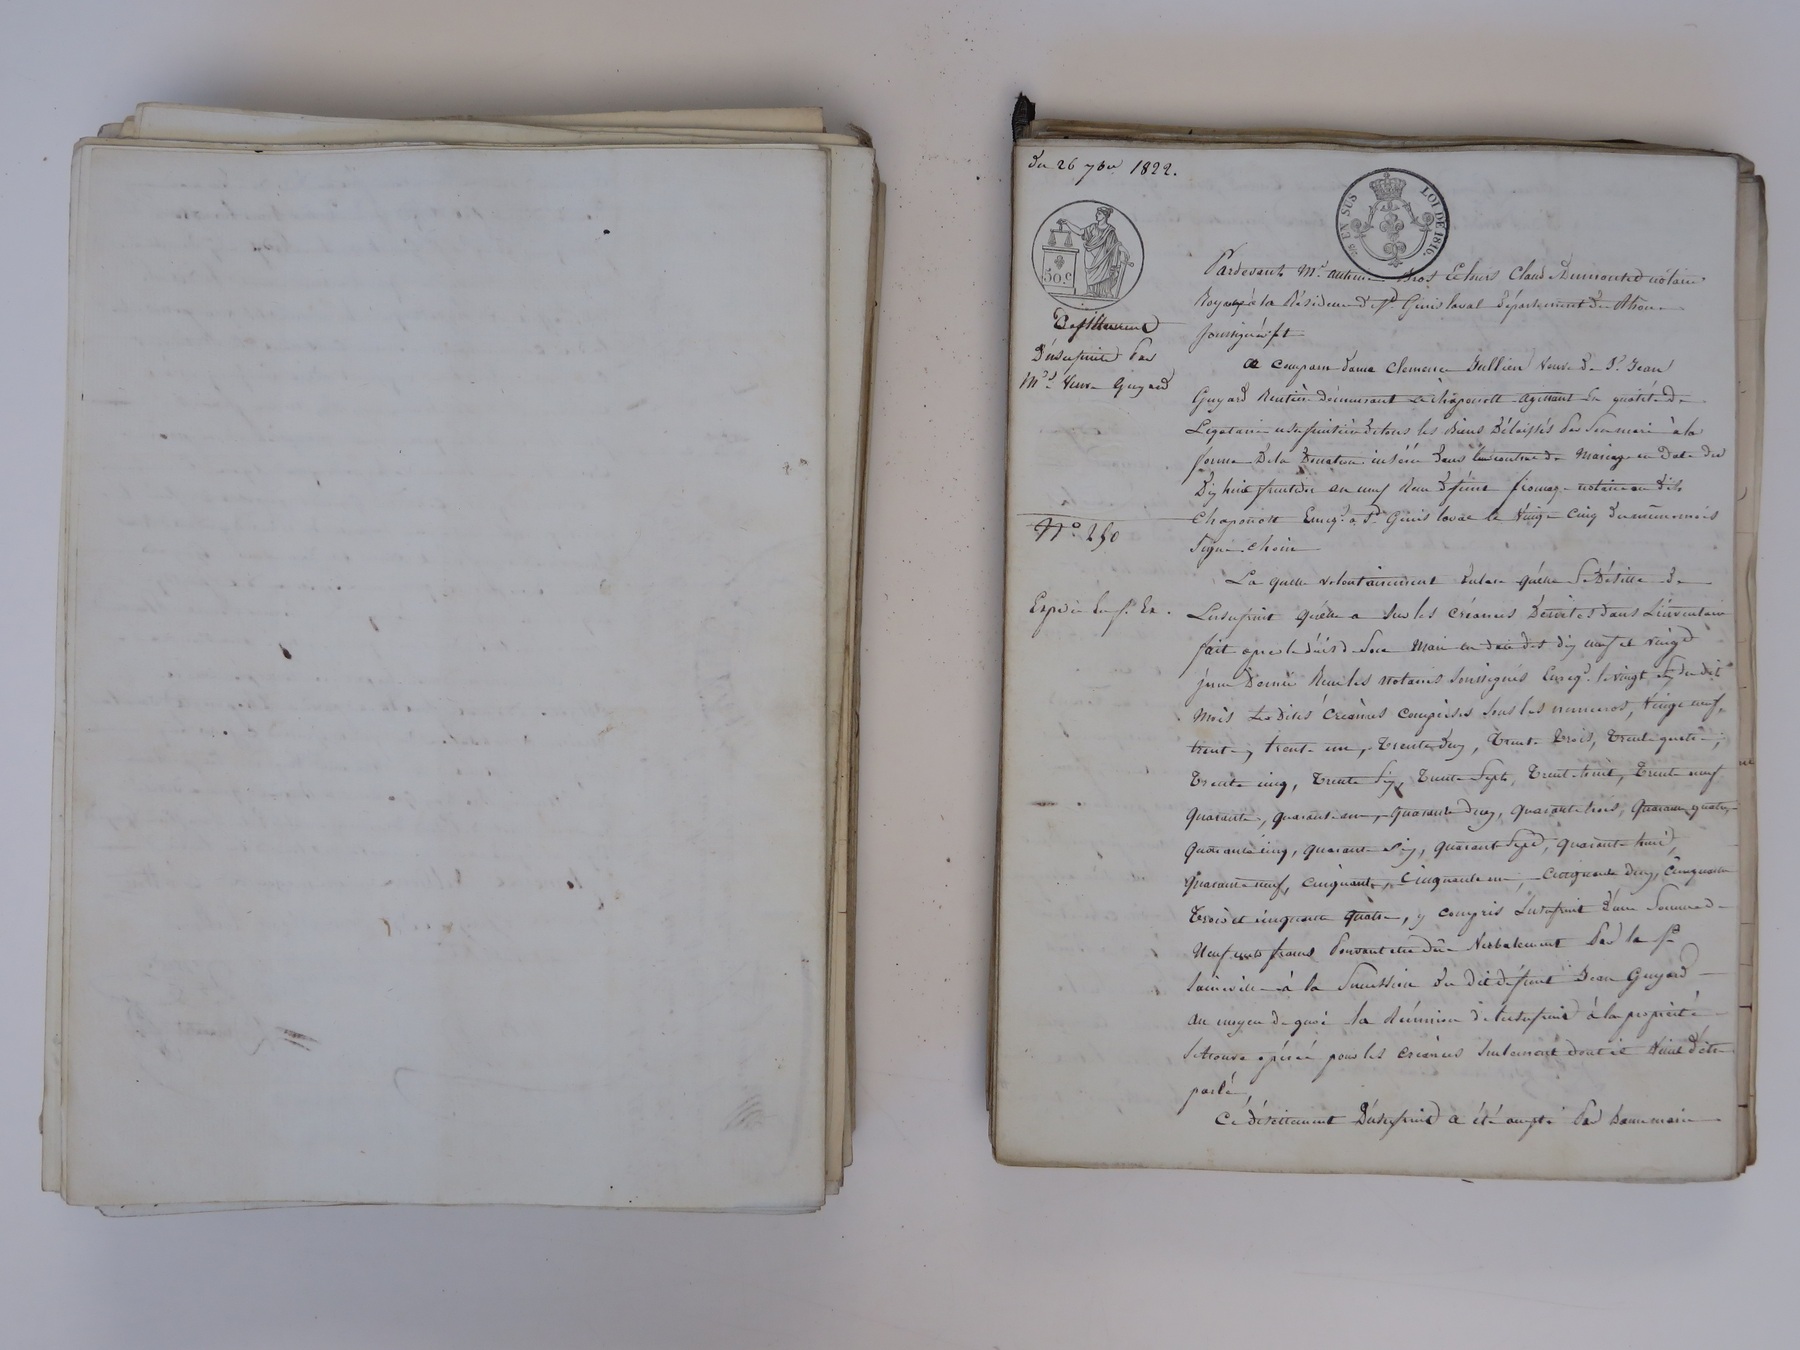 Du 26 7bre 1822.
EN SUS LOI DE 1816.
50.c
Désistement
D'usufruit Par
Md. Veuve Guyard
N.o 250
Pardevant Me. antoine et Claude notaire
Royaux à la Résidence de St Genis laval Département du Rhone
soussignés fut
a comparu dame clemence Jullien Veuve de Sr. Jean
Guyard Rentière demeurant à chaponost agissant en qualité de
Légataire usufruitière de tous les Biens Délaissés Par son mari à la
forme De la Donation insérée dans leur contrat de Mariage en Date du
Dix huit fructidor an neuf Reçu Défunt notaire au dit
Chaponost Enreg.é à St. Genis laval le Vingt Cinq du même mois
Signé
La quelle volontairement Déclare quelle Se Désiste de
L'usufruit quelle a sur les créances Décrites dans L'inventaire
fait après le décès de Son Mari en date des dix neuf et vingt
juin Dernier Reçu les notaires soussignés Enreg.é le vingt du dit
Mois Les Dites Créances comprises sous les numeros, Vingt neuf,
trente, trente un, trente deux, trente trois, trente quatre,
trente cinq, trente six, trente sept, trente huit, trente neuf
quarante, quarante un, quarante deux, quarante trois, quarante quatre,
quarante cinq, quarante six, quarante sept, quarante huit,
quarante neuf, cinquante, cinquante un, cinquante deux, cinquante
trois et cinquante quatre, y compris Lusufruit d'une Somme de
Neuf cents francs Pouvant etre Due Verbalement Par la
à la Succession Du Dit défunt Jean Guyard
au moyen de quoi la Réunion de Lusufruit à la propriété
se trouve opérée pour les créances seulement dont il Vient D'être
parlé,
Ce désistement D'usufruit a été accepté Par